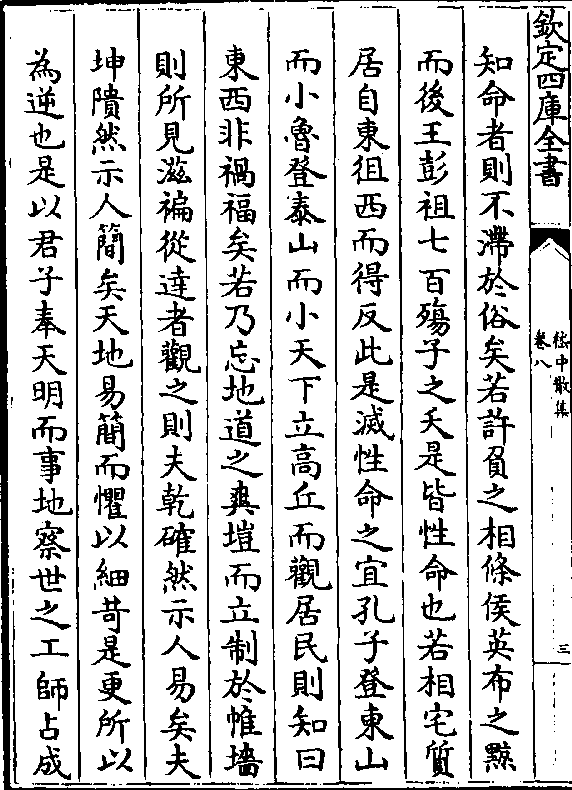 欽定四庫全書
嵇中散集
卷八
三
知命者則不滯於俗矣若許負之相條侯英布之黥
而後王彭祖七百殤子之夭是皆性命也若相宅質
居自東徂西而得反此是滅性命之宜孔子登東山
而小魯登泰山而小天下立高丘而觀居民則知曰
東西非禍福矣若乃忘地道之爽塏而立制於帷墻
則所見滋褊從達者觀之則夫乾確然示人易矣夫
坤隤然示人簡矣天地易簡而懼以細苛是更所以
為逆也是以君子奉天明而事地察世之工師占成